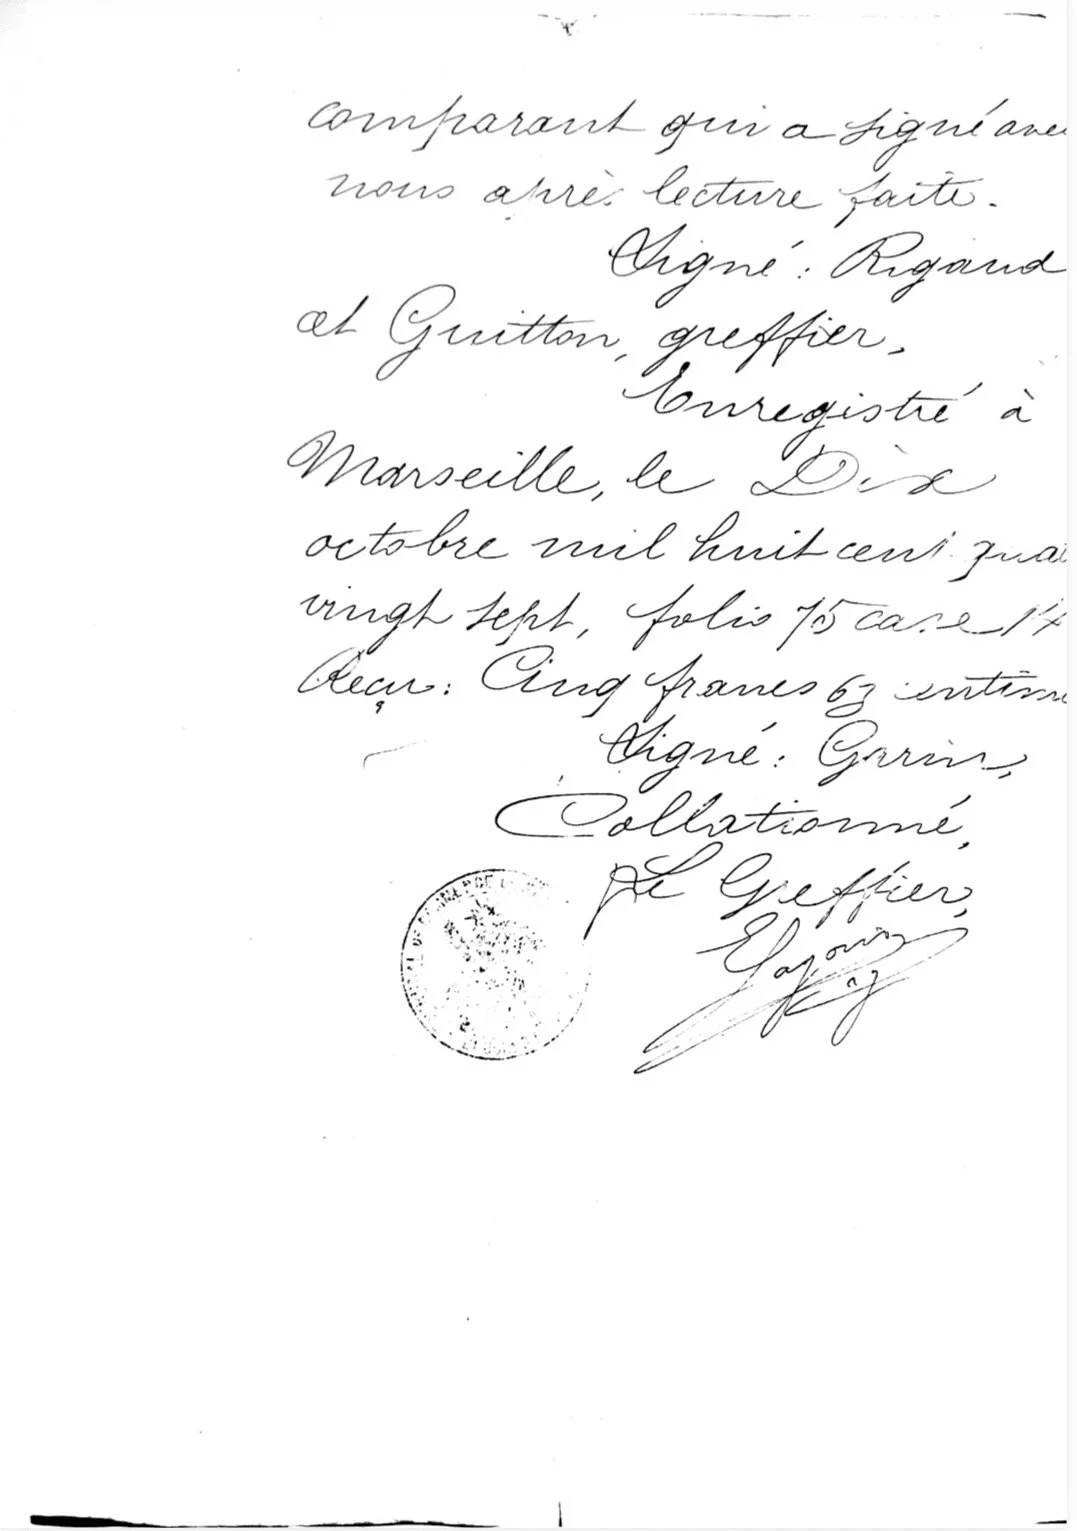 comparant qui a signé avec
nous après lecture faite.
Signé: Rigaud
et Guitton, greffier,
Enregistré à
Marseille, le Dix
octobre mil huit cent qua
vingt sept, folio 75 case 14
Reçu: Cinq francs 63 centim
Signé: Garin,
Collationné,
Le Greffier,
DE COMMERCE DE